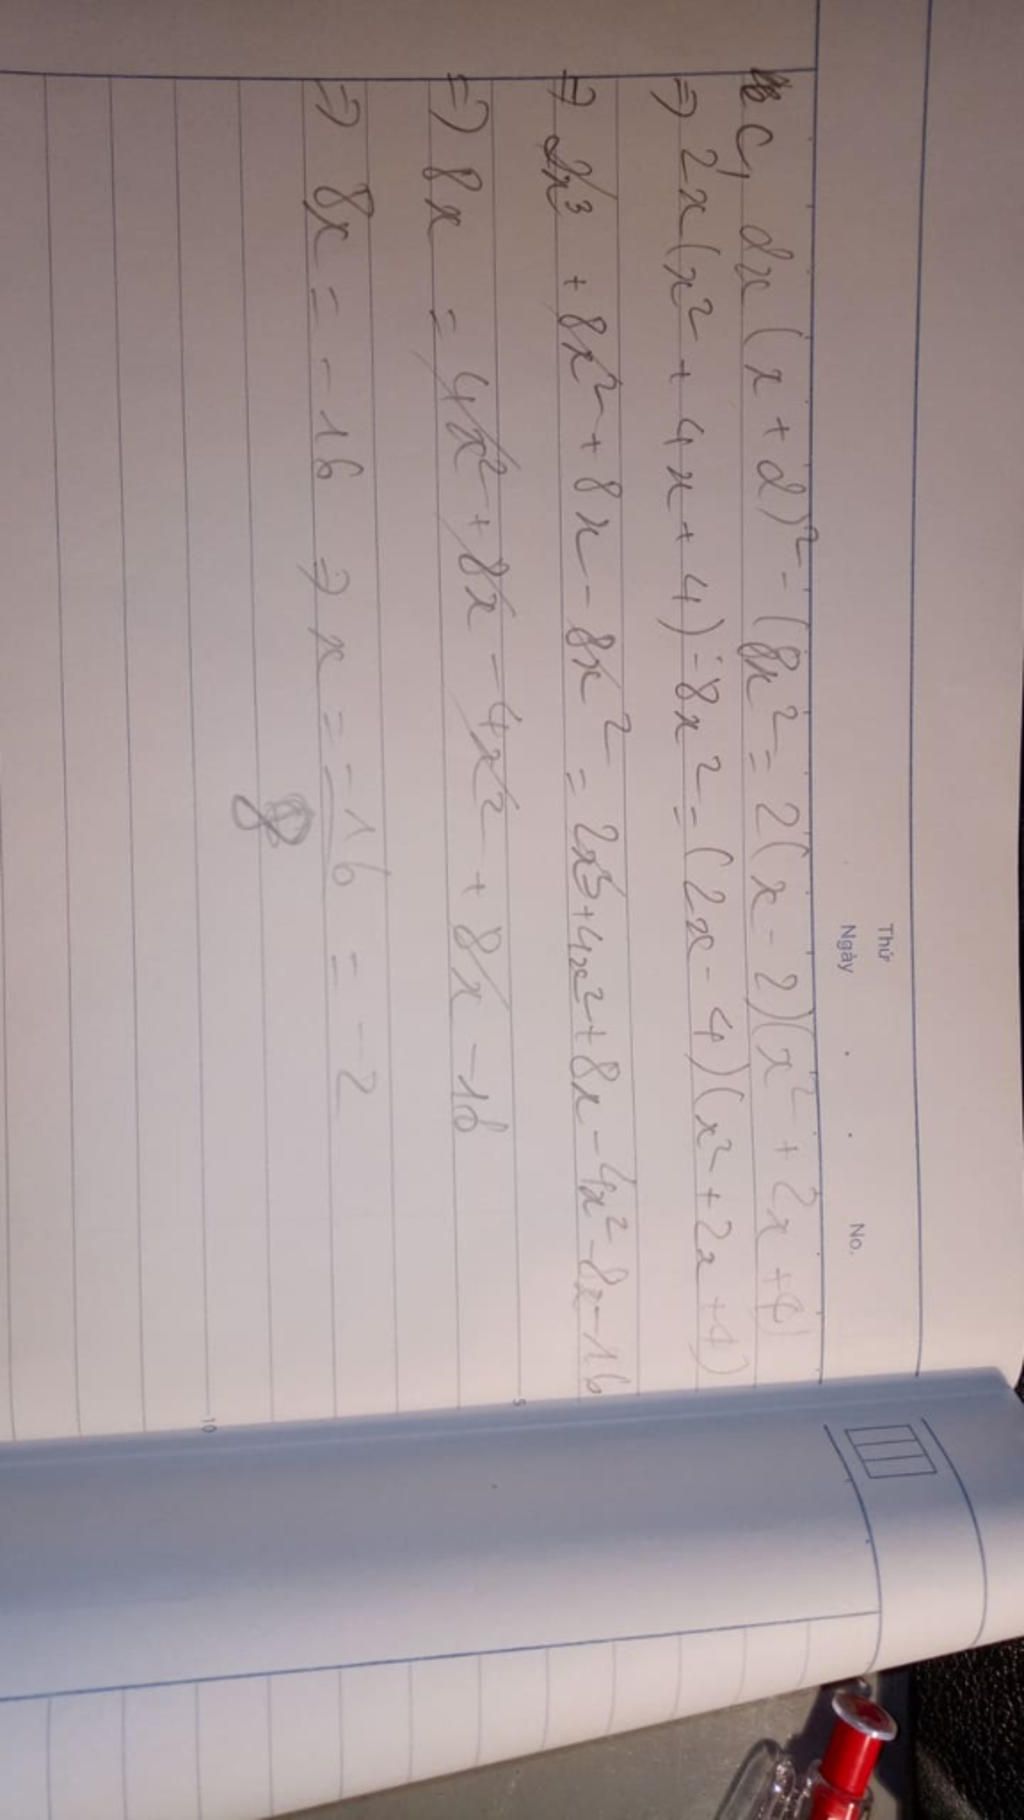 Thứ
Ngày . . No.
c, 2x(x+2)² - (8x² = 2(x-2)(x²+2x+4)
=> 2x(x²+4x+4) - 8x² = (2x-4)(x²+2x+4)
=> 2x³ + 8x² + 8x - 8x² = 2x³+4x²+8x-4x²-8x-16
=> 8x = 4x² + 8x - 4x² + 8x - 16
=> 8x = -16 => x = -16/8 = -2
5
10